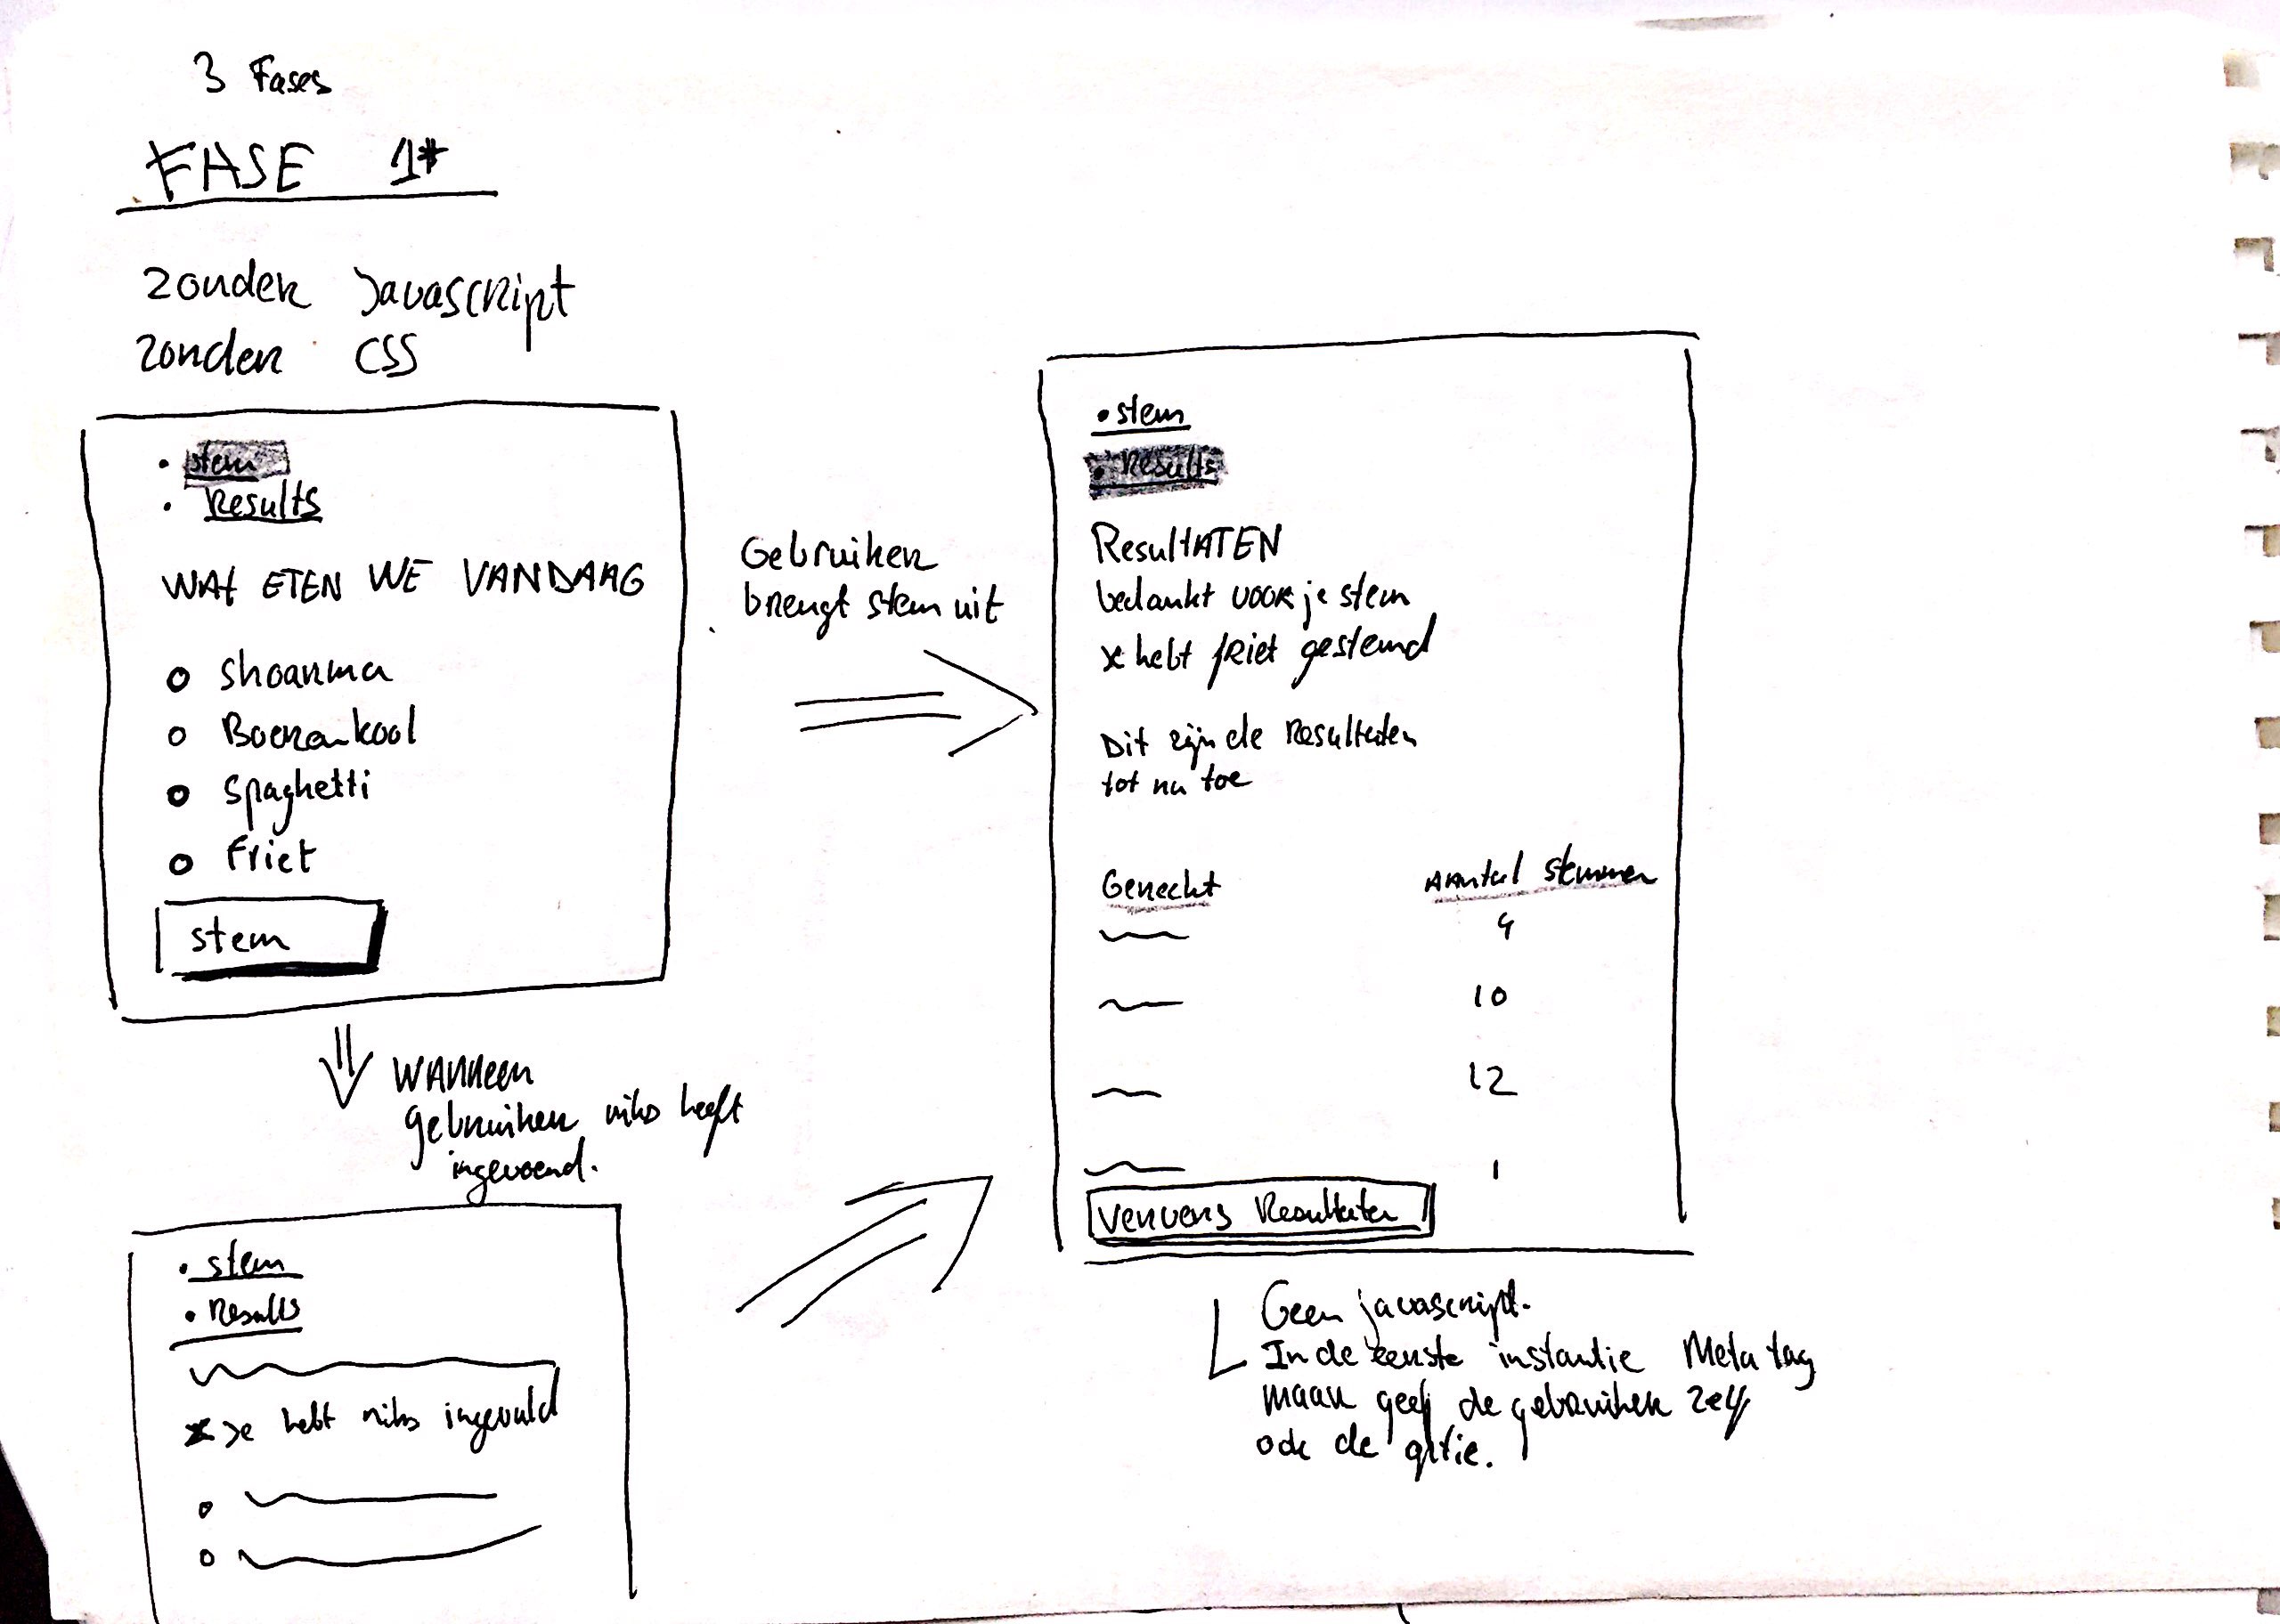 3 Fases
FASE 1*
zonder Javascript
zonder CSS
• stem
• Results
WAT ETEN WE VANDAAG
Shoarma
Boerenkool
Spaghetti
Friet
stem
Gebruiker
brengt stem uit
• stem
• Results
ResultATEN
bedankt voor je stem
Je hebt friet gestemd
Dit zijn de Resultaten
tot nu toe
Gerecht Aantal stemmen
4
10
12
1
Ververs Resultaten
Geen javascript.
In de eerste instantie Meta tag
maar geef de gebruiker zelf
ook de optie.
WANNEER
gebruiker niks heeft
ingevoerd.
• stem
• Results
* Je hebt niks ingevuld